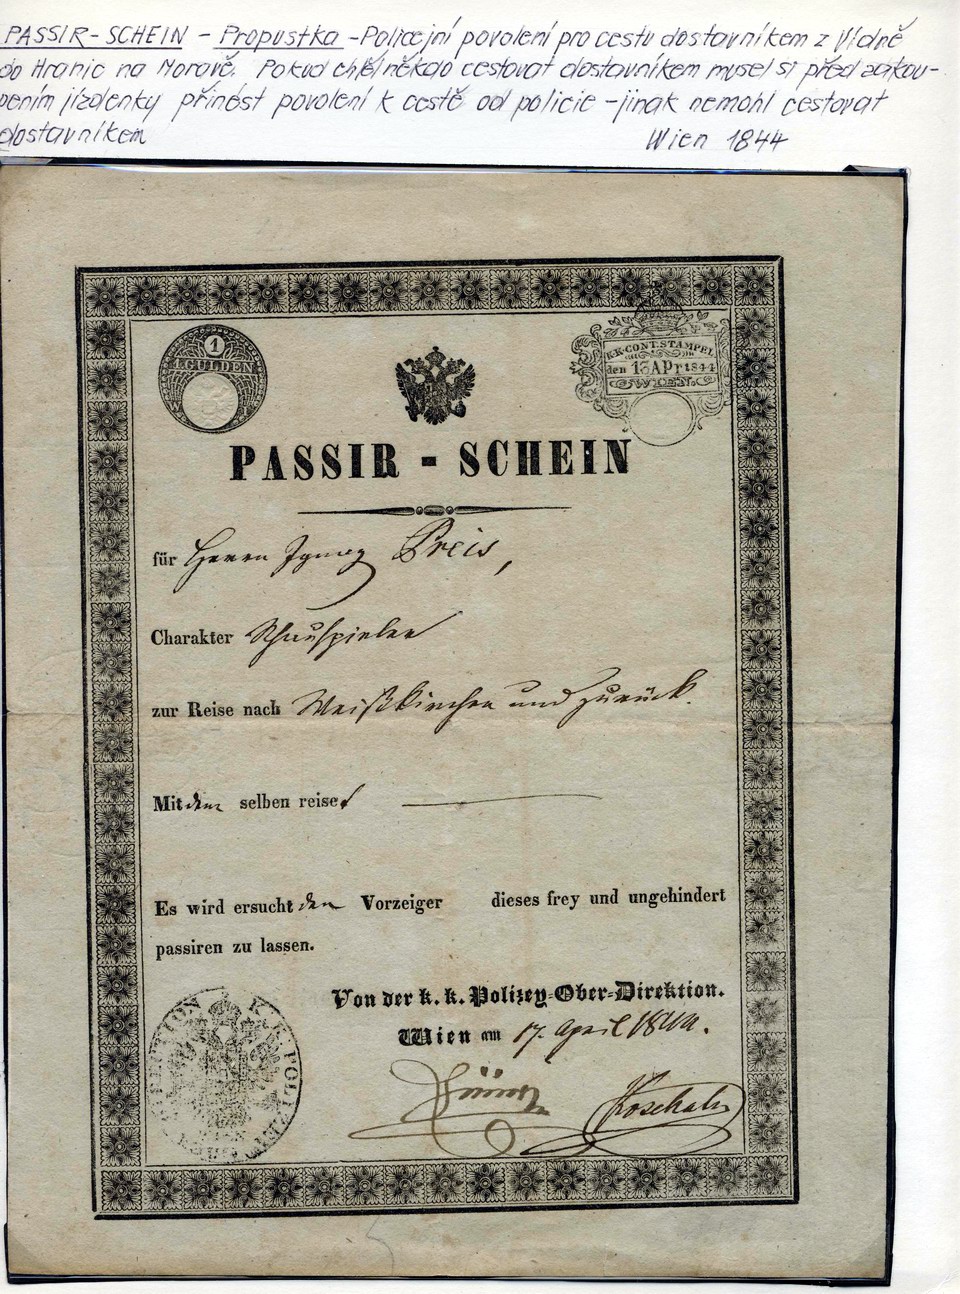 PASSIR-SCHEIN - Propustka - Policejní povolení pro cestu dostavníkem z Vídně
do Hranic na Moravě. Pokud chtěl někdo cestovat dostavníkem musel si před zakou-
pením jízdenky přinést povolení k cestě od policie - jinak nemohl cestovat
dostavníkem
Wien 1844
1
1.GULDEN
K.K.CONT.STAMPEL
den 13 APr 1844
WIEN.
PASSIR - SCHEIN
für Herrn Ignaz Preis,
Charakter Schauspieler
zur Reise nach Weißkirchen und zurück.
Mit dem selben reiset
Es wird ersucht den Vorzeiger dieses frey und ungehindert
passiren zu lassen.
Von der k. k. Polizey-Ober-Direktion.
Wien am 17. April 1844.
K. K. POLIZEY